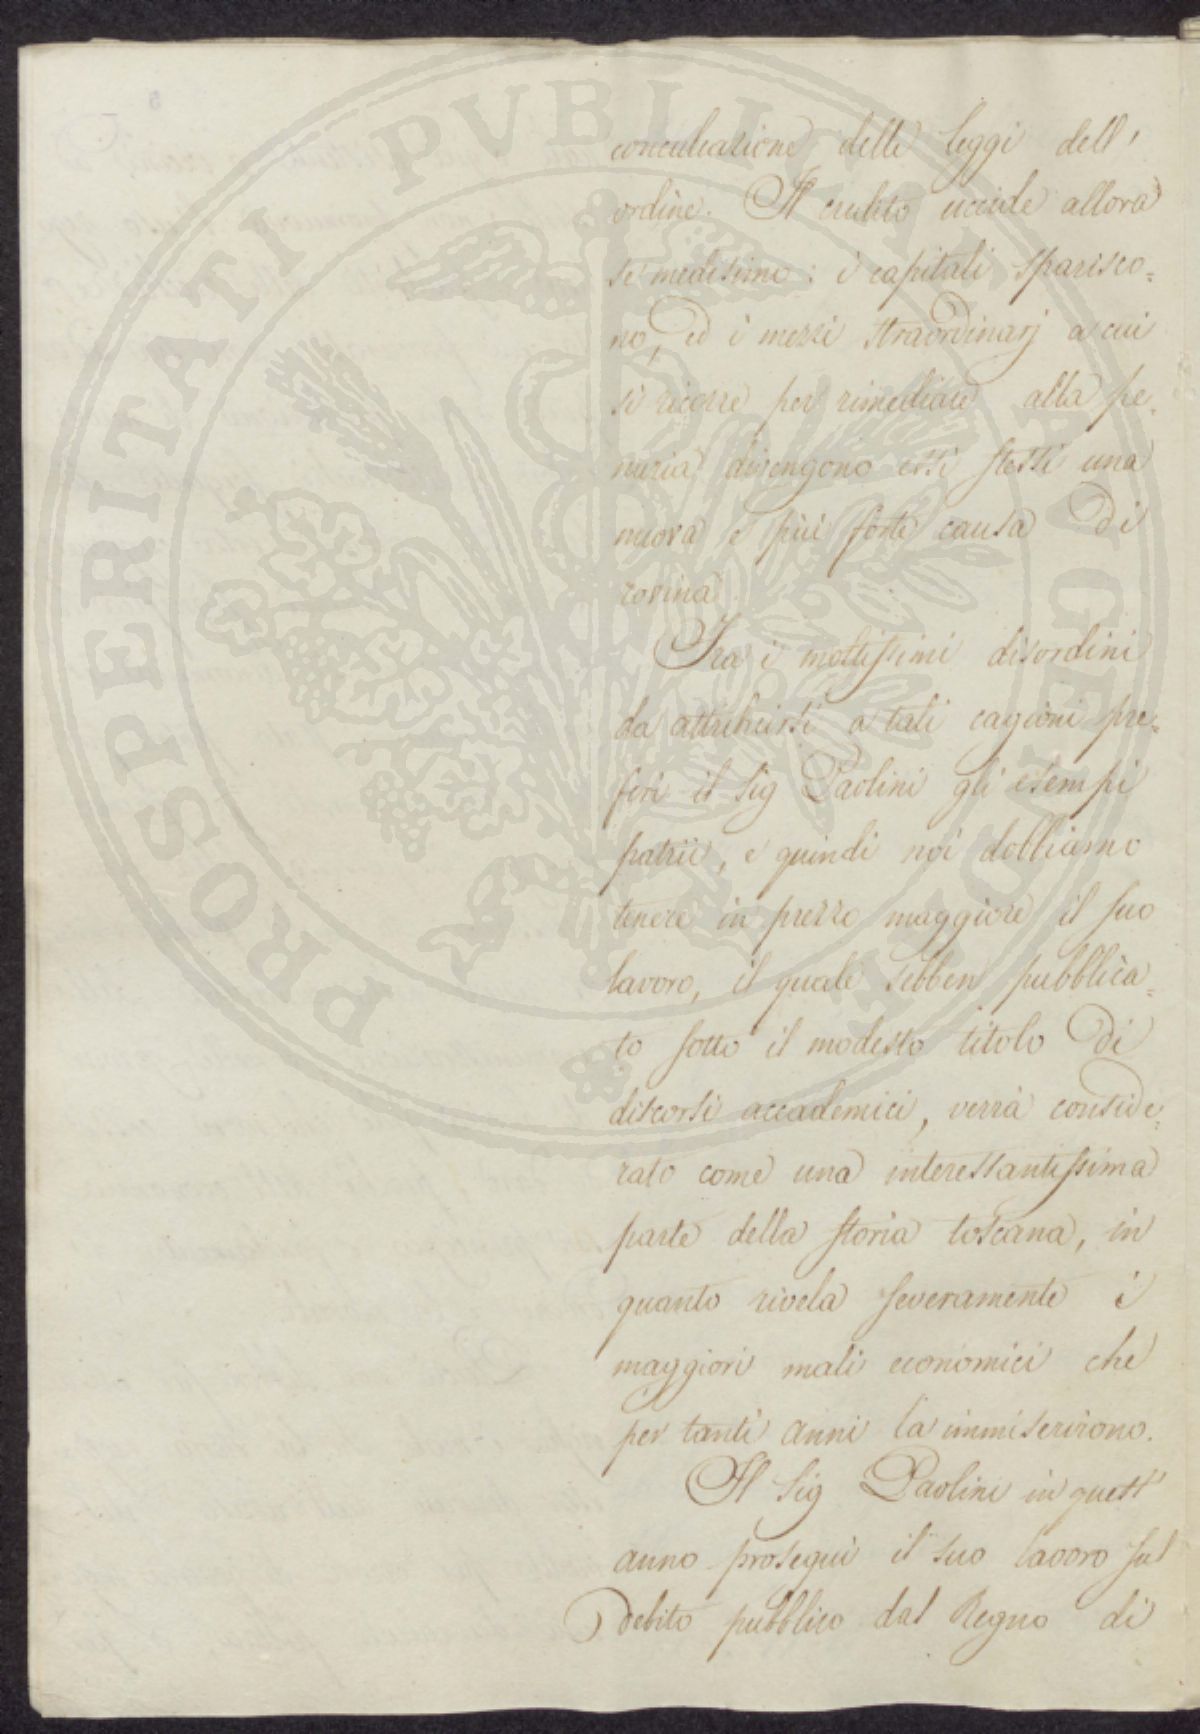 conculcazione delle leggi dell'
ordine. Il credito uccide allora
se medesimo: i capitali sparisco=
no, ed i mezzi straordinarj a cui
si ricorre per rimediare alla pe=
nuria divengono essi stessi una
nuova e più forte causa di
rovina.
Fra i moltissimi disordini
da attribuirsi a tali cagioni pre=
ferì il Sig Paolini gli esempi
patrii, e quindi noi dobbiamo
tenere in prezzo maggiore il suo
lavoro, il quale sebben pubblica=
to sotto il modesto titolo di
discorsi accademici, verrà conside=
rato come una interessantissima
parte della storia toscana, in
quanto rivela severamente i
maggiori mali economici che
per tanti anni la immiserirono.
Il Sig Paolini in quest'
anno proseguì il suo lavoro sul
debito pubblico dal Regno di
PROSPERITATI PVBLICAE AVGENDAE